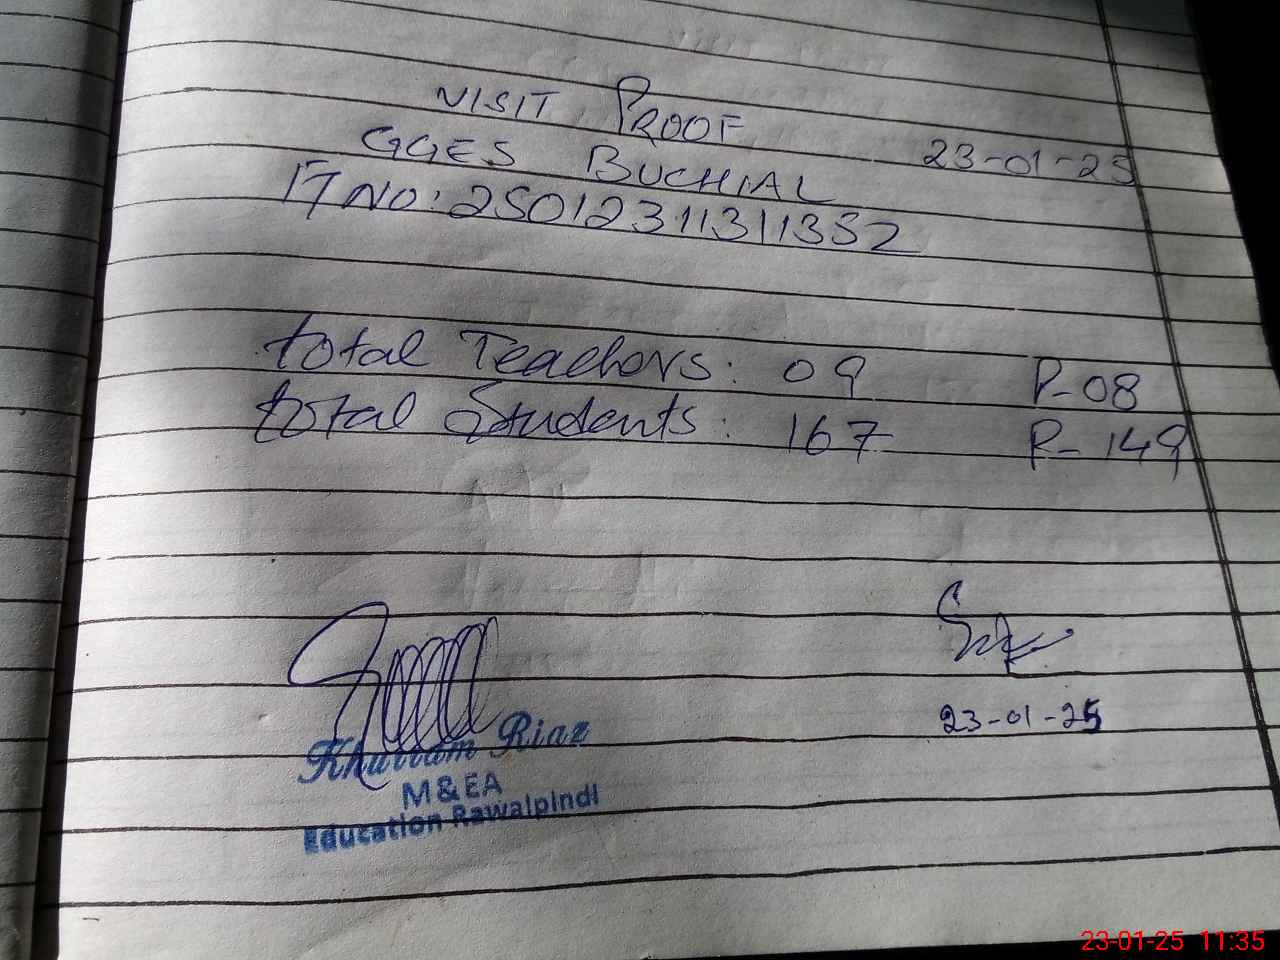 VISIT PROOF
GGES BUCHIAL 23-01-25
IT NO: 25012311311352
total Teachors: 09 P-08
total Students: 167 P-149
23-01-25
Khurram Riaz
M&EA
Education Rawalpindi
23-01-25 11:35